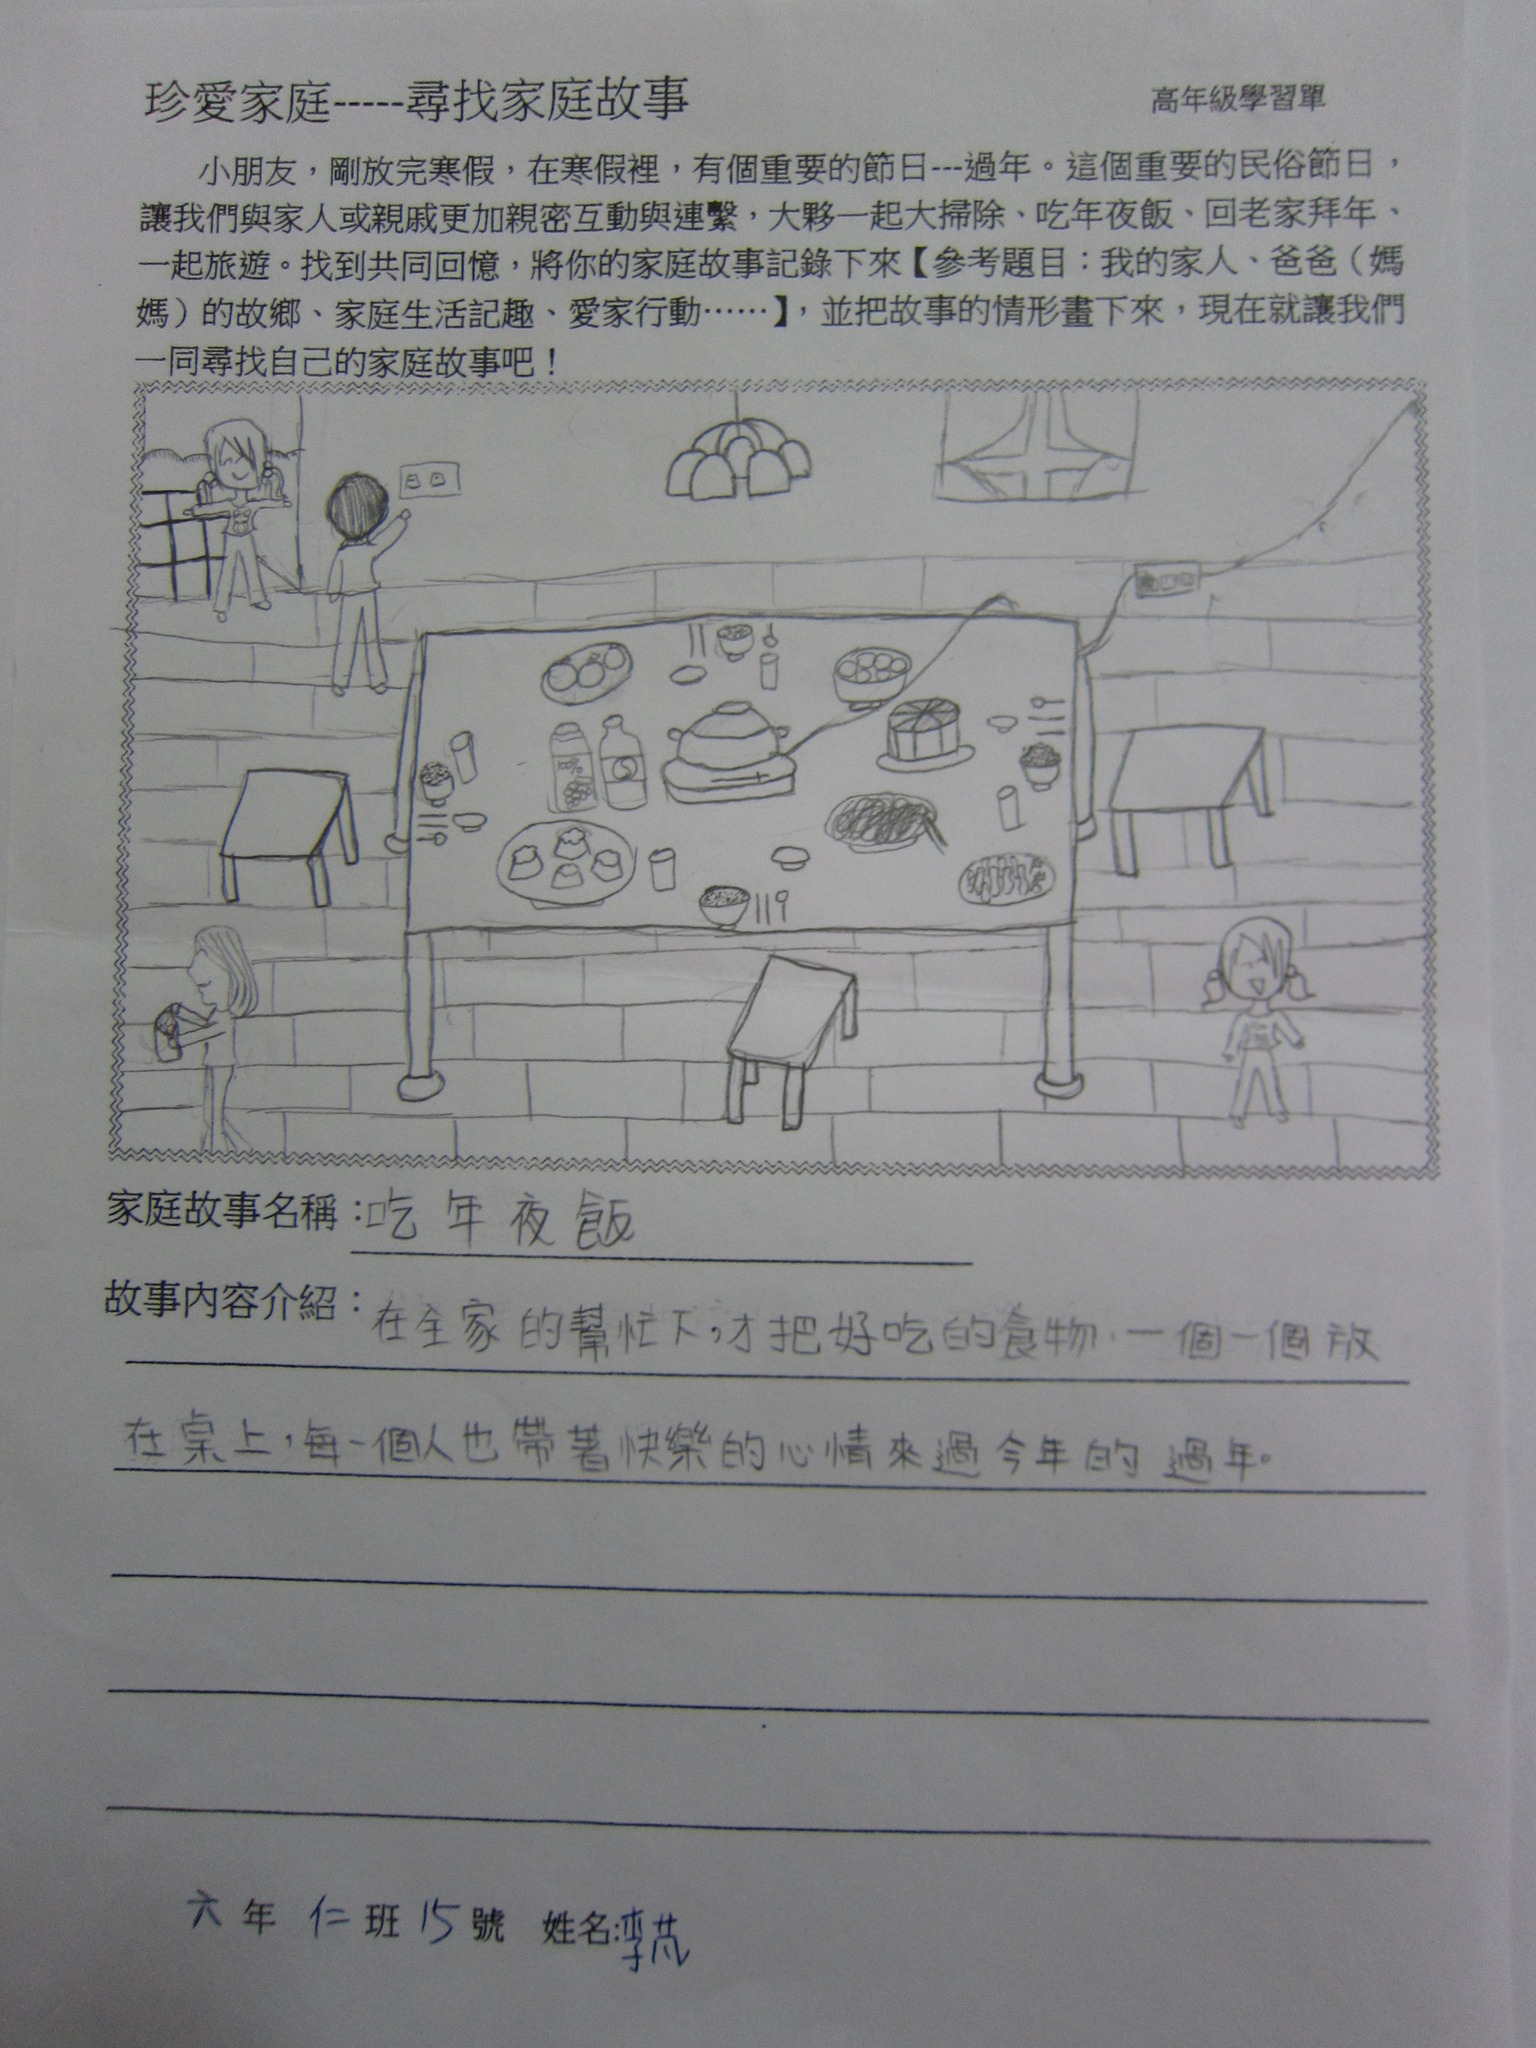 珍愛家庭-----尋找家庭故事
高年級學習單
小朋友，剛放完寒假，在寒假裡，有個重要的節日---過年。這個重要的民俗節日，
讓我們與家人或親戚更加親密互動與連繫，大夥一起大掃除、吃年夜飯、回老家拜年、
一起旅遊。找到共同回憶，將你的家庭故事記錄下來【參考題目：我的家人、爸爸（媽
媽）的故鄉、家庭生活記趣、愛家行動……】，並把故事的情形畫下來，現在就讓我們
一同尋找自己的家庭故事吧！
100%
家庭故事名稱：吃年夜飯
故事內容介紹：在全家的幫忙下，才把好吃的食物，一個一個放
在桌上，每一個人也帶著快樂的心情來過今年的過年。
六年仁班15號 姓名:李芃